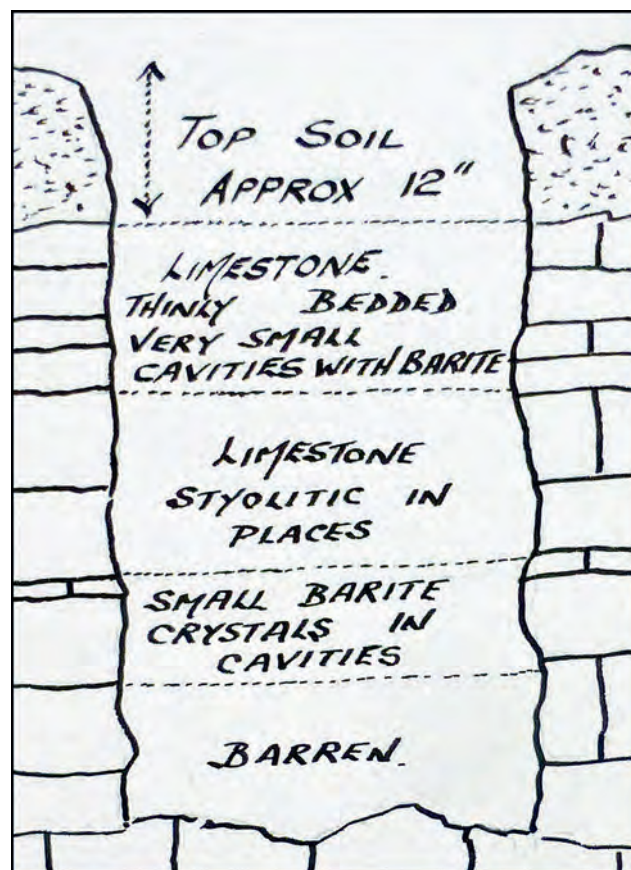 TOP SOIL
APPROX 12"
LIMESTONE.
THINLY BEDDED
VERY SMALL
CAVITIES WITH BARITE
LIMESTONE
STYOLITIC IN
PLACES
SMALL BARITE
CRYSTALS IN
CAVITIES
BARREN.